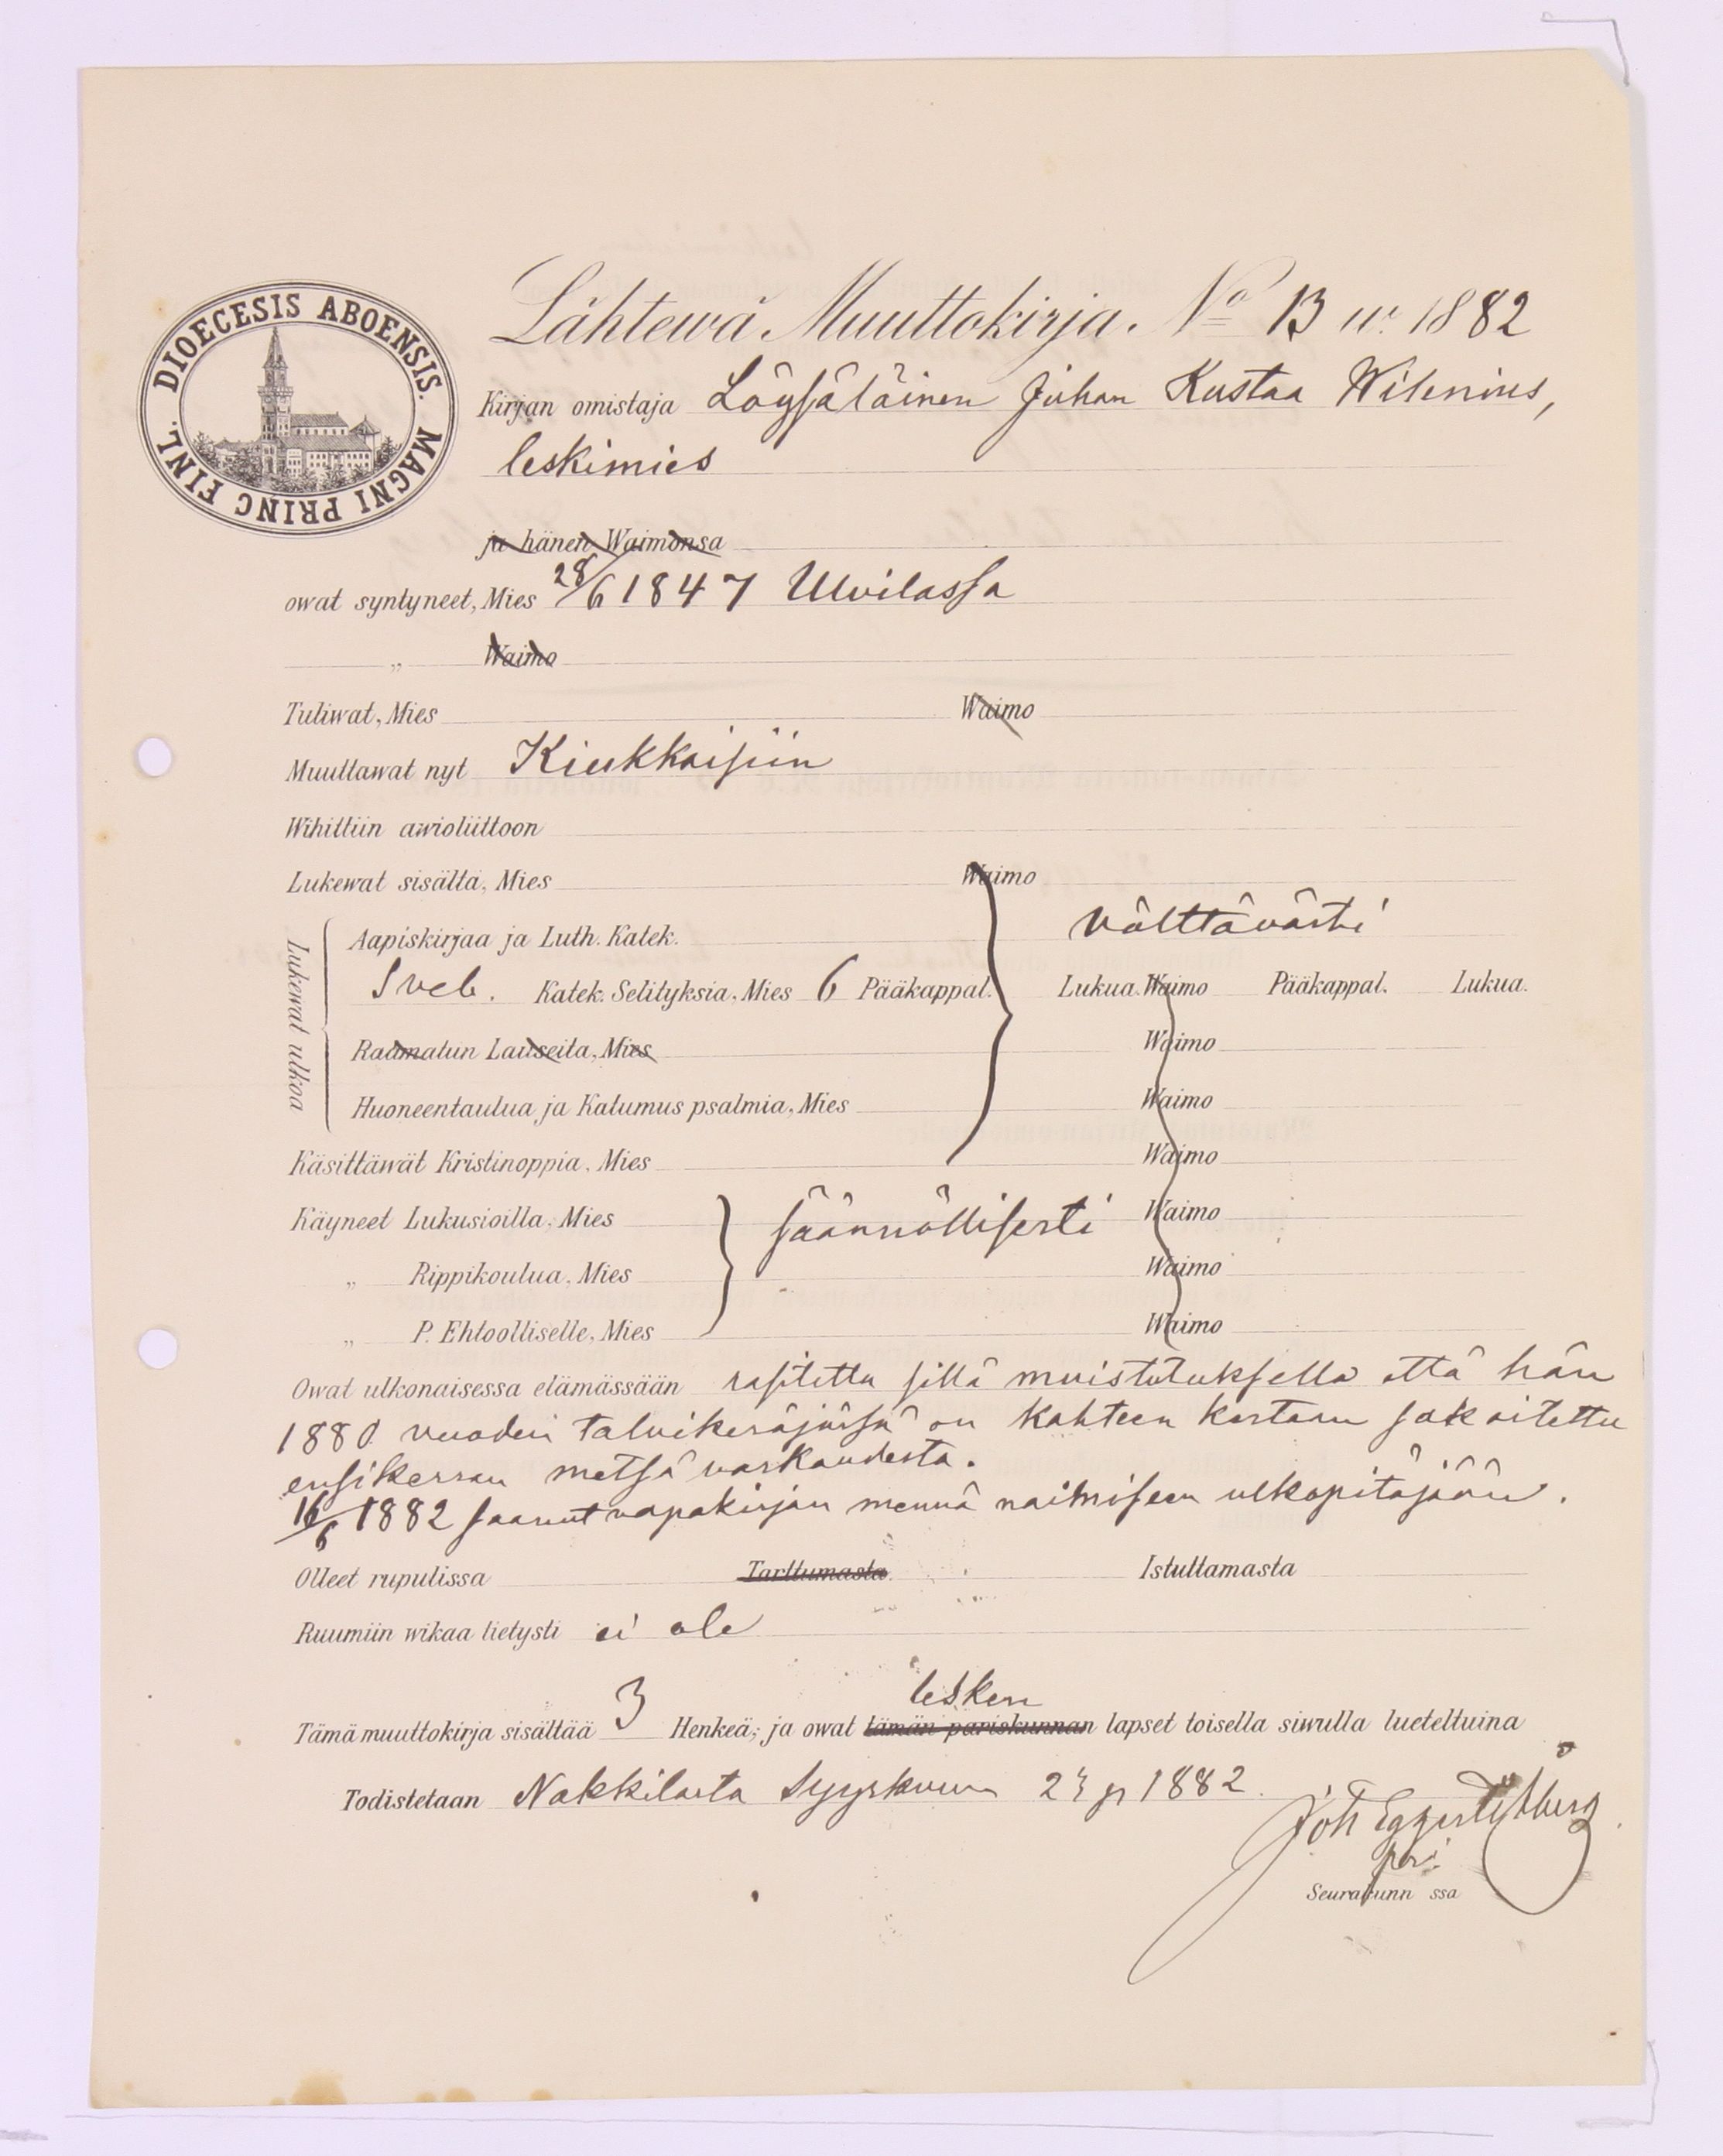 DIOECESIS ABOENSIS. MAGNI PRINC FINL.
Lähtewä Muuttokirja. No 13 w. 1882
Kirjan omistaja Löysäläinen Juhan Kustaa Wilenius,
leskimies
ja hänen Waimonsa
owat syntyneet, Mies 28/6 1847 Ulvilassa
„ Waimo
Tuliwat, Mies Waimo
Muuttawat nyt Kiukkaisiin
Wihittiin awioliittoon
Lukewat sisältä, Mies Waimo
Lukewat ulkoa
Aapiskirjaa ja Luth. Katek. välttävästi
Sveb. Katek. Selityksiä, Mies 6 Pääkappal. Lukua. Waimo Pääkappal. Lukua.
Raamatun Lauseita, Mies Waimo
Huoneentaulua ja Katumus psalmia, Mies Waimo
Käsittäwät Kristinoppia, Mies Waimo
Käyneet Lukusioilla, Mies säännöllisesti Waimo
„ Rippikoulua, Mies Waimo
„ P. Ehtoolliselle, Mies Waimo
Owat ulkonaisessa elämässään rasitettu sillä muistutuksella että hän
1880 vuoden talvikeräjissä on kahteen kertaan sakoitettu
ensikerran metsävarkaudesta.
16/6 1882 saanut vapakirjan mennä naimiseen ulkopitäjään.
Olleet rupulissa Tarttumasta Istuttamasta
Ruumiin wikaa tietysti ei ole
lesken
Tämä muuttokirja sisältää 3 Henkeä; ja owat tämän pariskunnan lapset toisella siwulla lueteltuina
Todistetaan Nakkilasta Syyskuun 23 p 1882
Joh Eggert
Seurakunn ssa